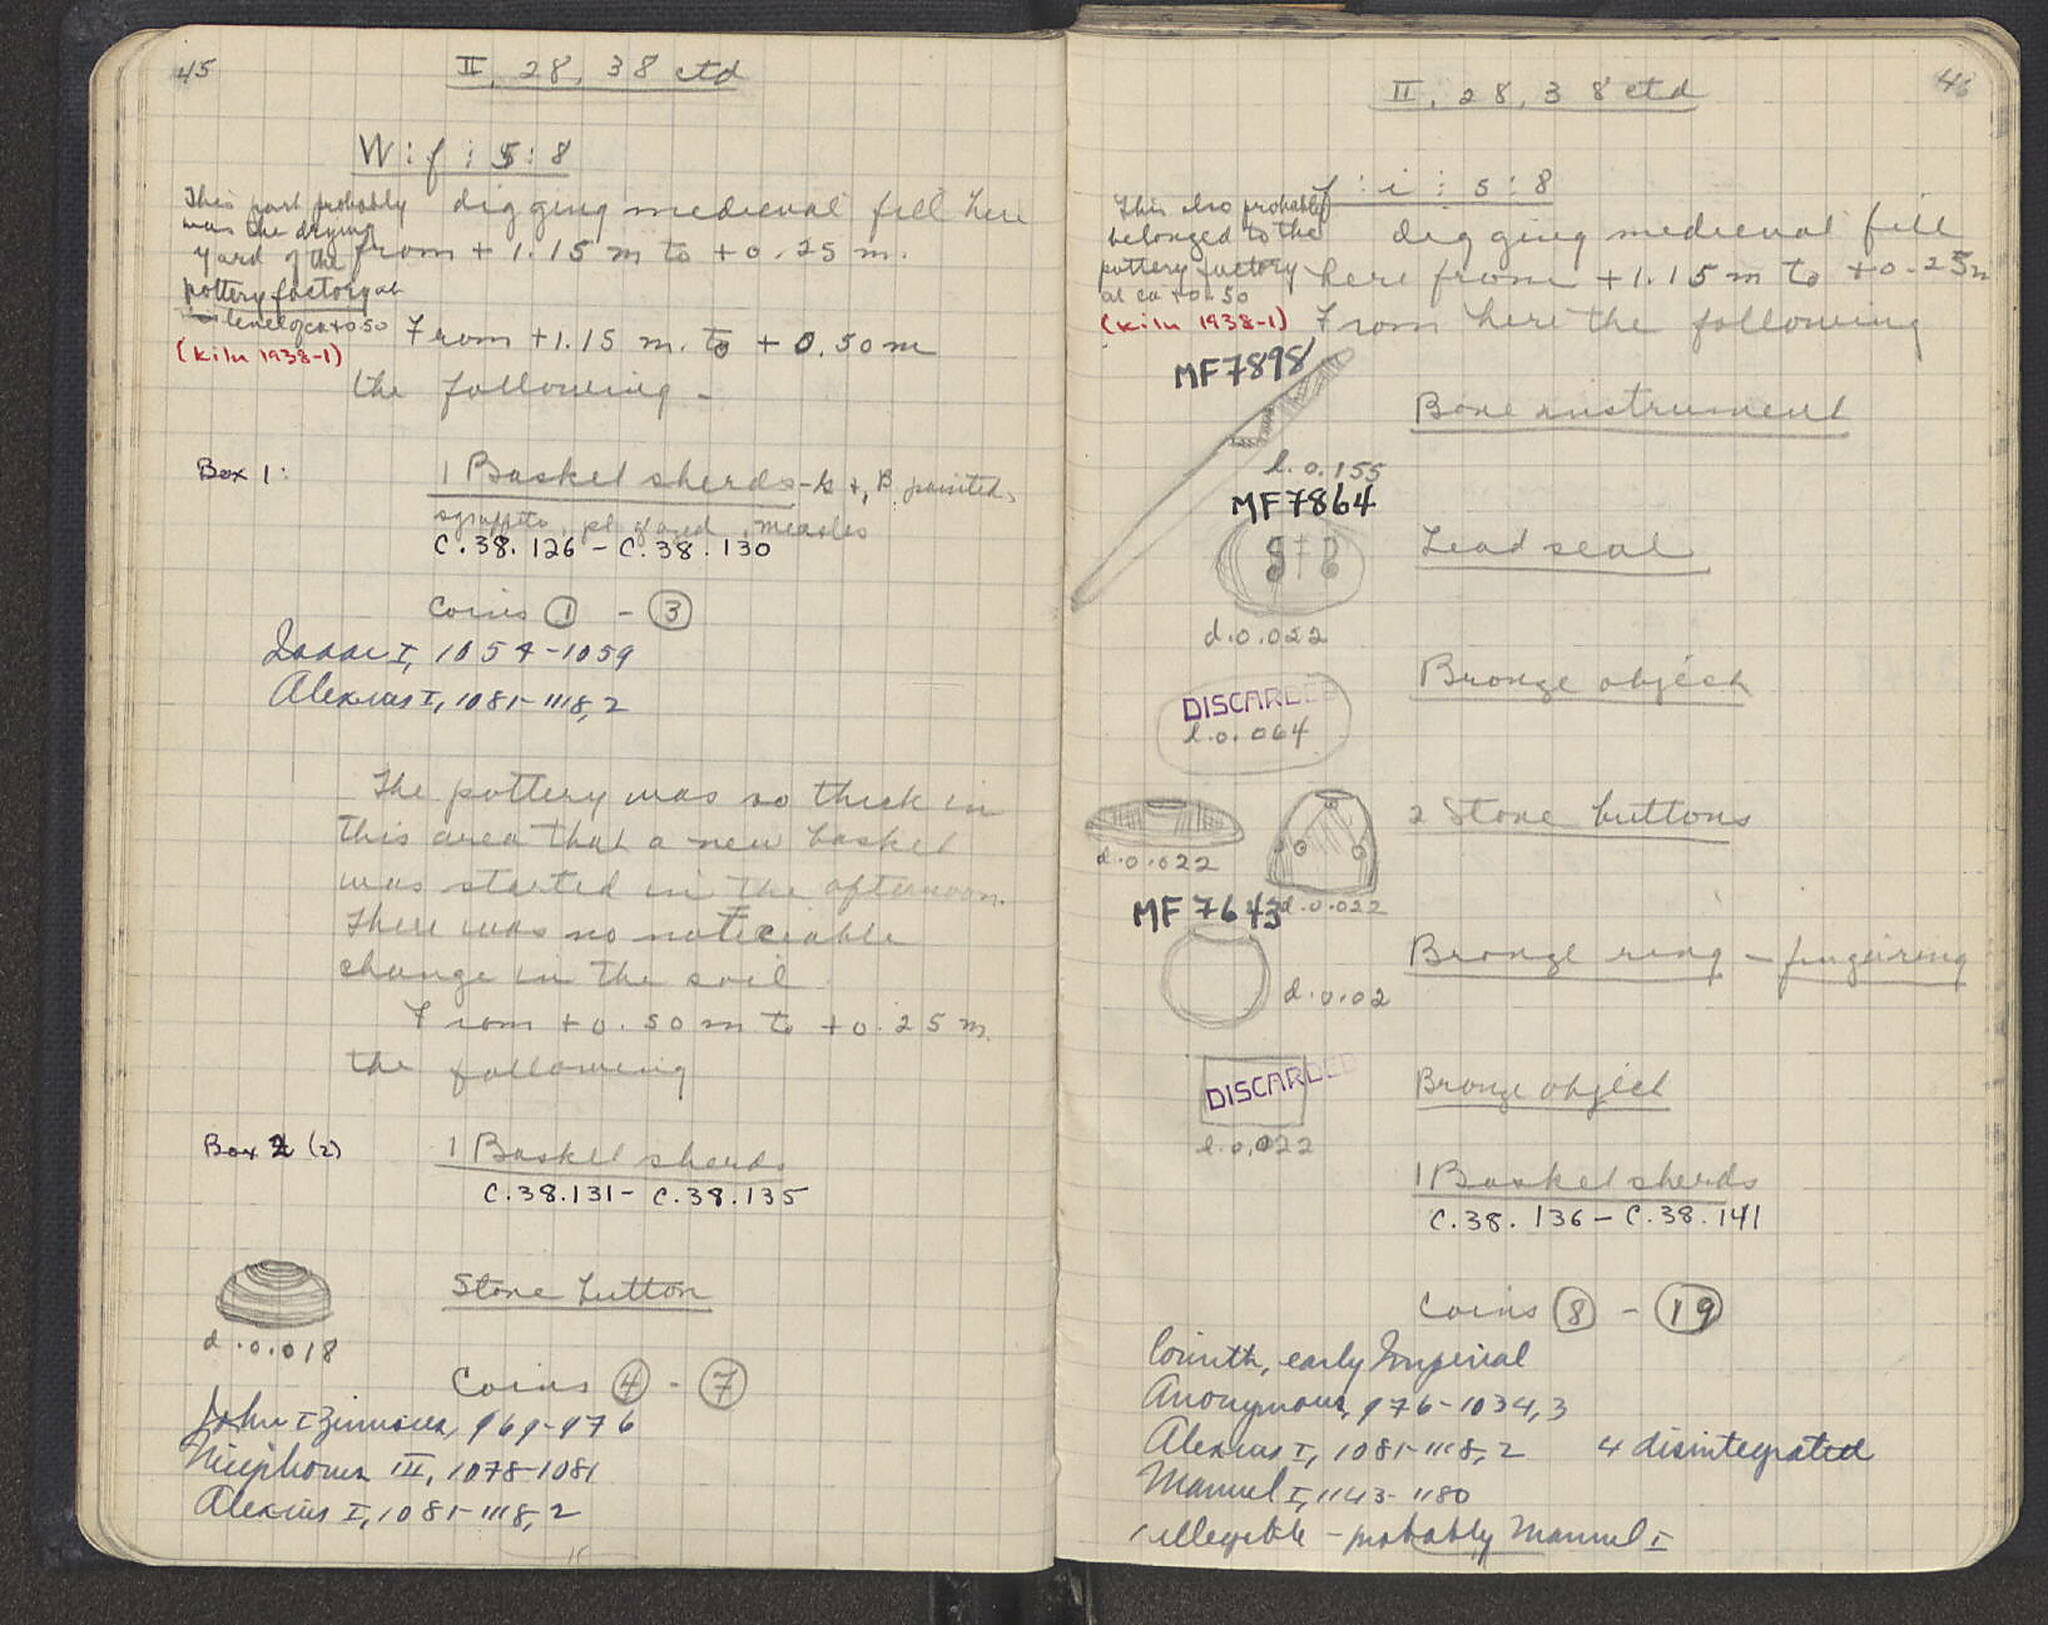 45
II, 28, 38 ctd
W : f : 5 : 8
This part probably
was the drying
yard of the
pottery factory at
level of ca +0.50
(Kiln 1938-1)
digging medieval fill here
from + 1.15 m to + 0.25 m.
From +1.15 m. to + 0.50 m
the following -
Box 1:
1 Basket sherds - b +, B. painted,
sgraffito, pl. glazed, measles
C.38.126 - C.38.130
Coins ① - ③
Isaac I, 1057-1059
Alexius I, 1081-1118, 2
The pottery was so thick in
this area that a new basket
was started in the afternoon.
There was no noticeable
change in the soil.
From +0.50 m to +0.25 m.
the following
Box 2 (2)
1 Basket sherds
C.38.131 - C.38.135
Stone button
d.0.018
Coins ④ - ⑦
John I Zimisces, 969-976
Nicephorus III, 1078-1081
Alexius I, 1081-1118, 2
46
II, 28, 38 ctd
: i : 5 : 8
This also probably
belonged to the
pottery factory
at ca +0.50
(Kiln 1938-1)
digging medieval fill
here from +1.15 m to +0.25m
From here the following
MF7898
Bone instrument
l.0.155
MF7864
Lead seal
d.0.022
Bronze object
DISCARDED
l.0.064
2 Stone buttons
d.0.022
d.0.022
MF 7643
Bronze ring - finger ring
d.0.02
Bronze object
DISCARDED
l.0.022
1 Basket sherds
C.38.136 - C.38.141
Coins ⑧ - ⑲
Corinth, early Imperial
Anonymous, 976-1034, 3
Alexius I, 1081-1118, 2 4 disintegrated
Manuel I, 1143-1180
1 illegible - probably Manuel I